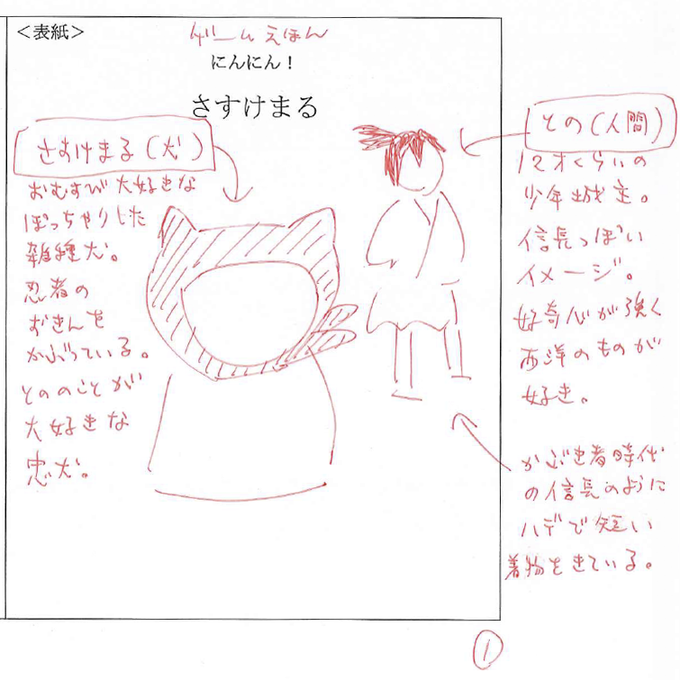 <表紙>
ゲームえほん
にんにん!
さすけまる
さすけまる(犬)
おむすび大好きな
ぽっちゃりした
雑種犬。
忍者の
ずきんを
かぶっている。
とののことが
大好きな
忠犬。
との(人間)
12才くらいの
少年城主。
信長っぽい
イメージ。
好奇心が強く
西洋のものが
好き。
かぶき者時代
の信長のように
ハデで短い
着物をきている。
1